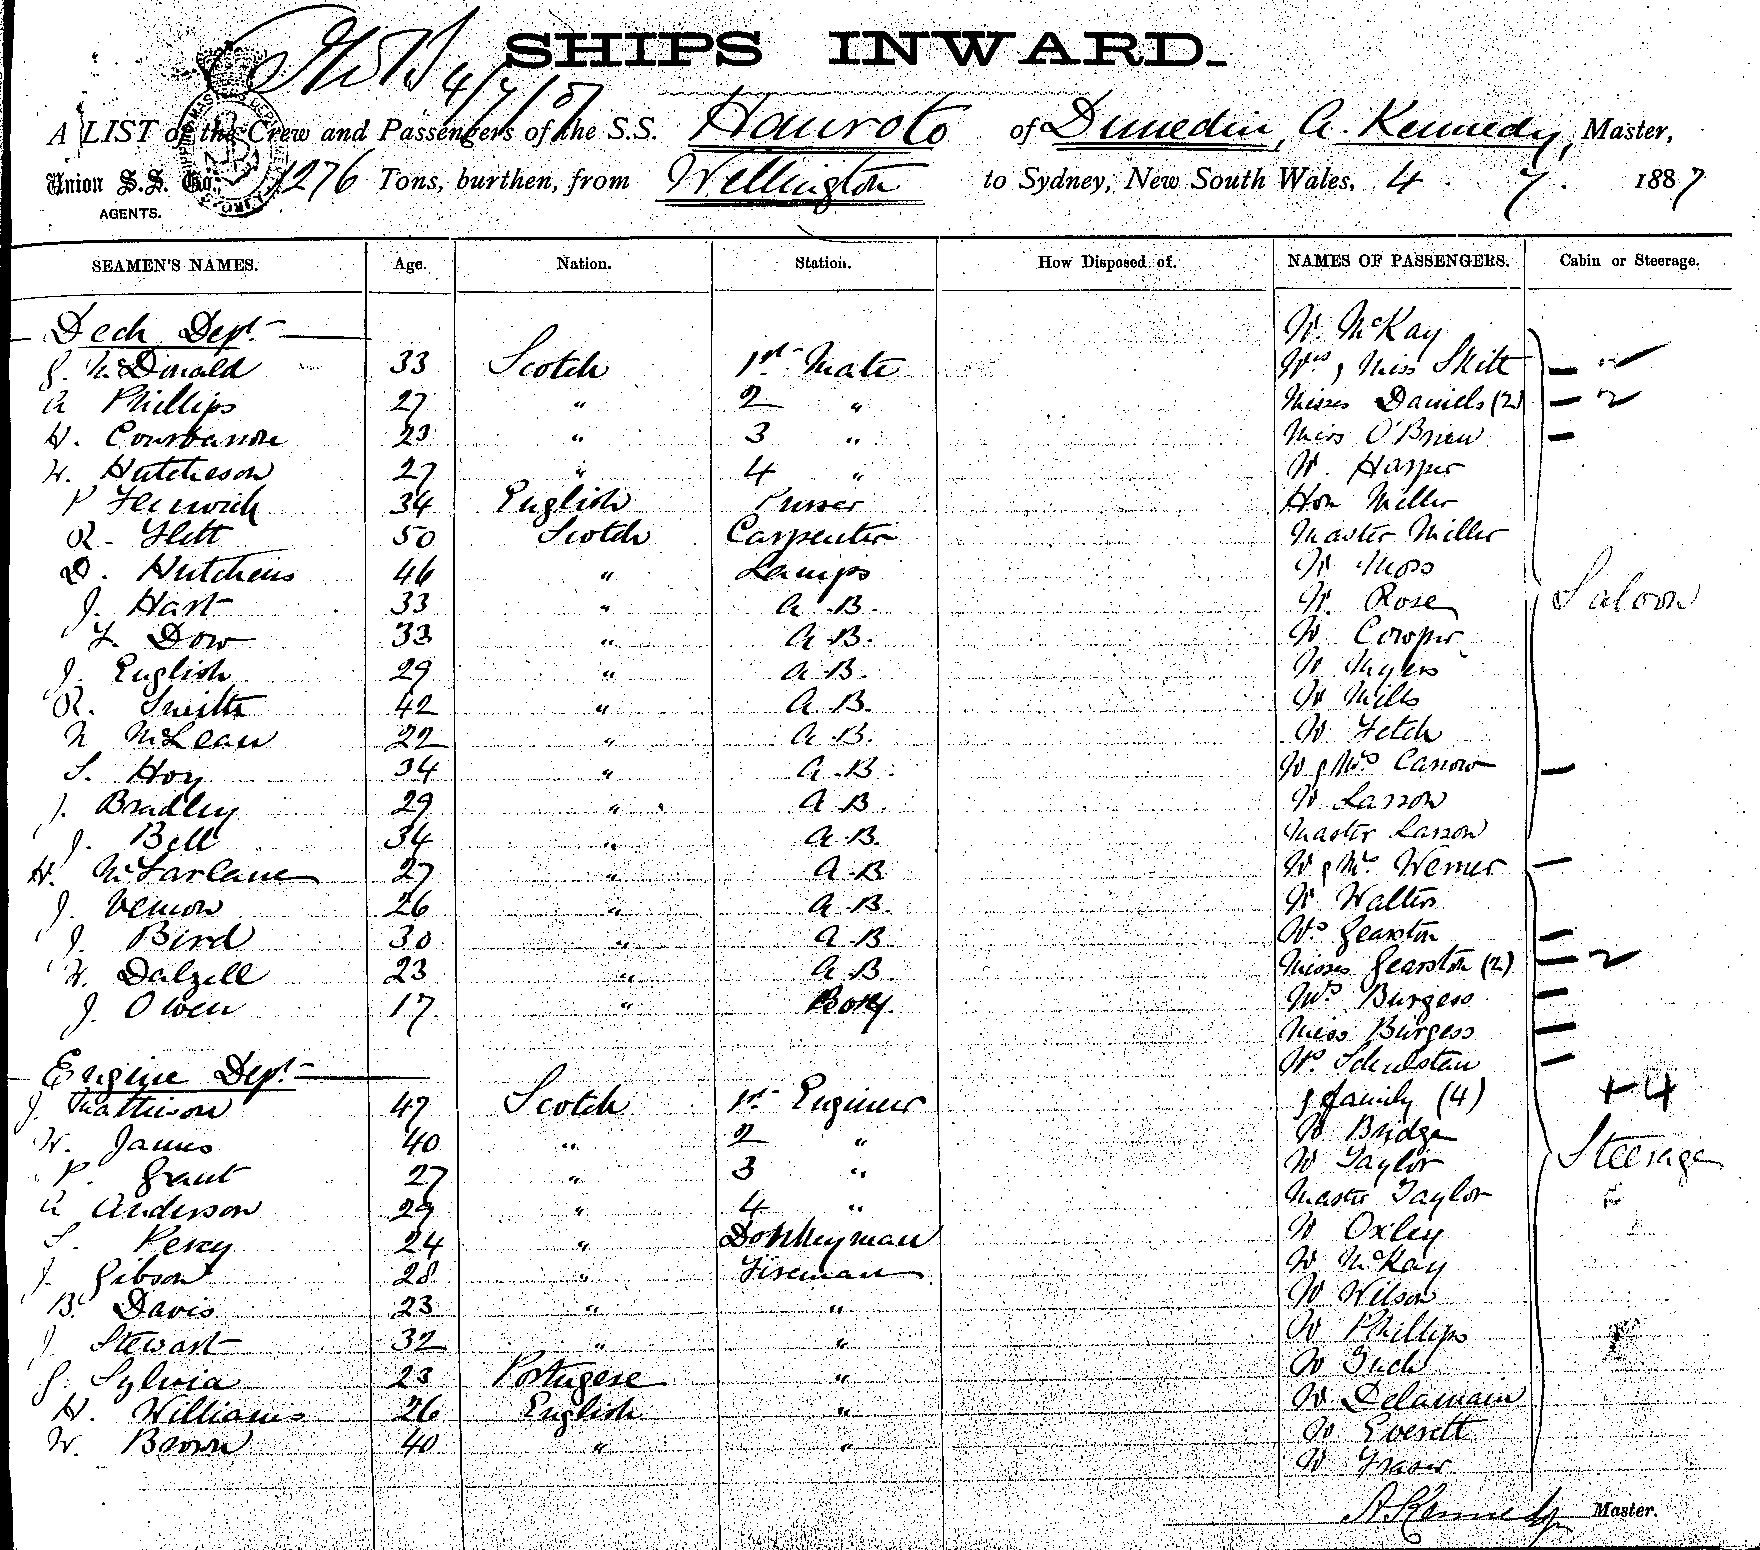 SHIPS INWARD.
4/7/87
A LIST of the Crew and Passengers of the S.S. Hauroto of Dunedin, A. Kennedy, Master,
Union S.S. Co., 1276 Tons, burthen, from Wellington to Sydney, New South Wales, 4 . 7 . 1887
AGENTS.
SEAMEN'S NAMES. Age. Nation. Station. How Disposed of. NAMES OF PASSENGERS. Cabin or Steerage.
Deck Dept. W. McKay
McDonald 33 Scotch 1st Mate Miss Skitt
A Phillips 27 " 2 " Misses Daniels (2) 2
H. 23 " 3 " Miss O'Brien
W. Hutcheson 27 " 4 " Mr. Harper
P Fenwick 34 English Purser Hon Miller
R. Flett 50 Scotch Carpenter Master Miller
D. Hutchens 46 " Lamps Mr Moss
J. Hart 33 " A.B. Mr. Rose Saloon
Dow 33 " A.B. Mr Cowper
J. English 29 " A.B. Mr Myers
R. Smith 42 " A.B. Mr Mills
N McLean 22 " A.B. Mr Fetch
S. Hoy 34 " A.B. Mr & Mrs
J. Bradley 29 " A.B. Mr Lasson
J. Bell 34 " A.B. Master Lasson
H. McFarlane 27 " A.B. Mr & Mrs Werner
J. Vernon 26 " A.B. Mr Walters
J. Bird 30 " A.B. Mrs Gearston
W. Dalzell 23 " A.B. Misses Gearston (2) 2
J. Owen 17 " Boy. Mrs Burgess
Miss Burgess
Engine Dept. Mrs
J. Mathieson 47 Scotch 1st Engineer & family (4) +4
W. James 40 " 2 " Mr Bridge
P. Grant 27 " 3 " Mr Taylor Steerage
A Anderson 29 " 4 " Master Taylor
S. Percy 24 " Donkeyman Mr Oxley
J. Gibson 28 " Fireman Mr McKay
B. Davis 23 " " Mr Wilson
J. Stewart 32 " " Mr Phillips
Sylvia 23 Portugese " Mr
H. Williams 26 English " Mr Delamain
W. Brown 40 " " Mr Everett
Mr Fraser
A Kennedy Master.